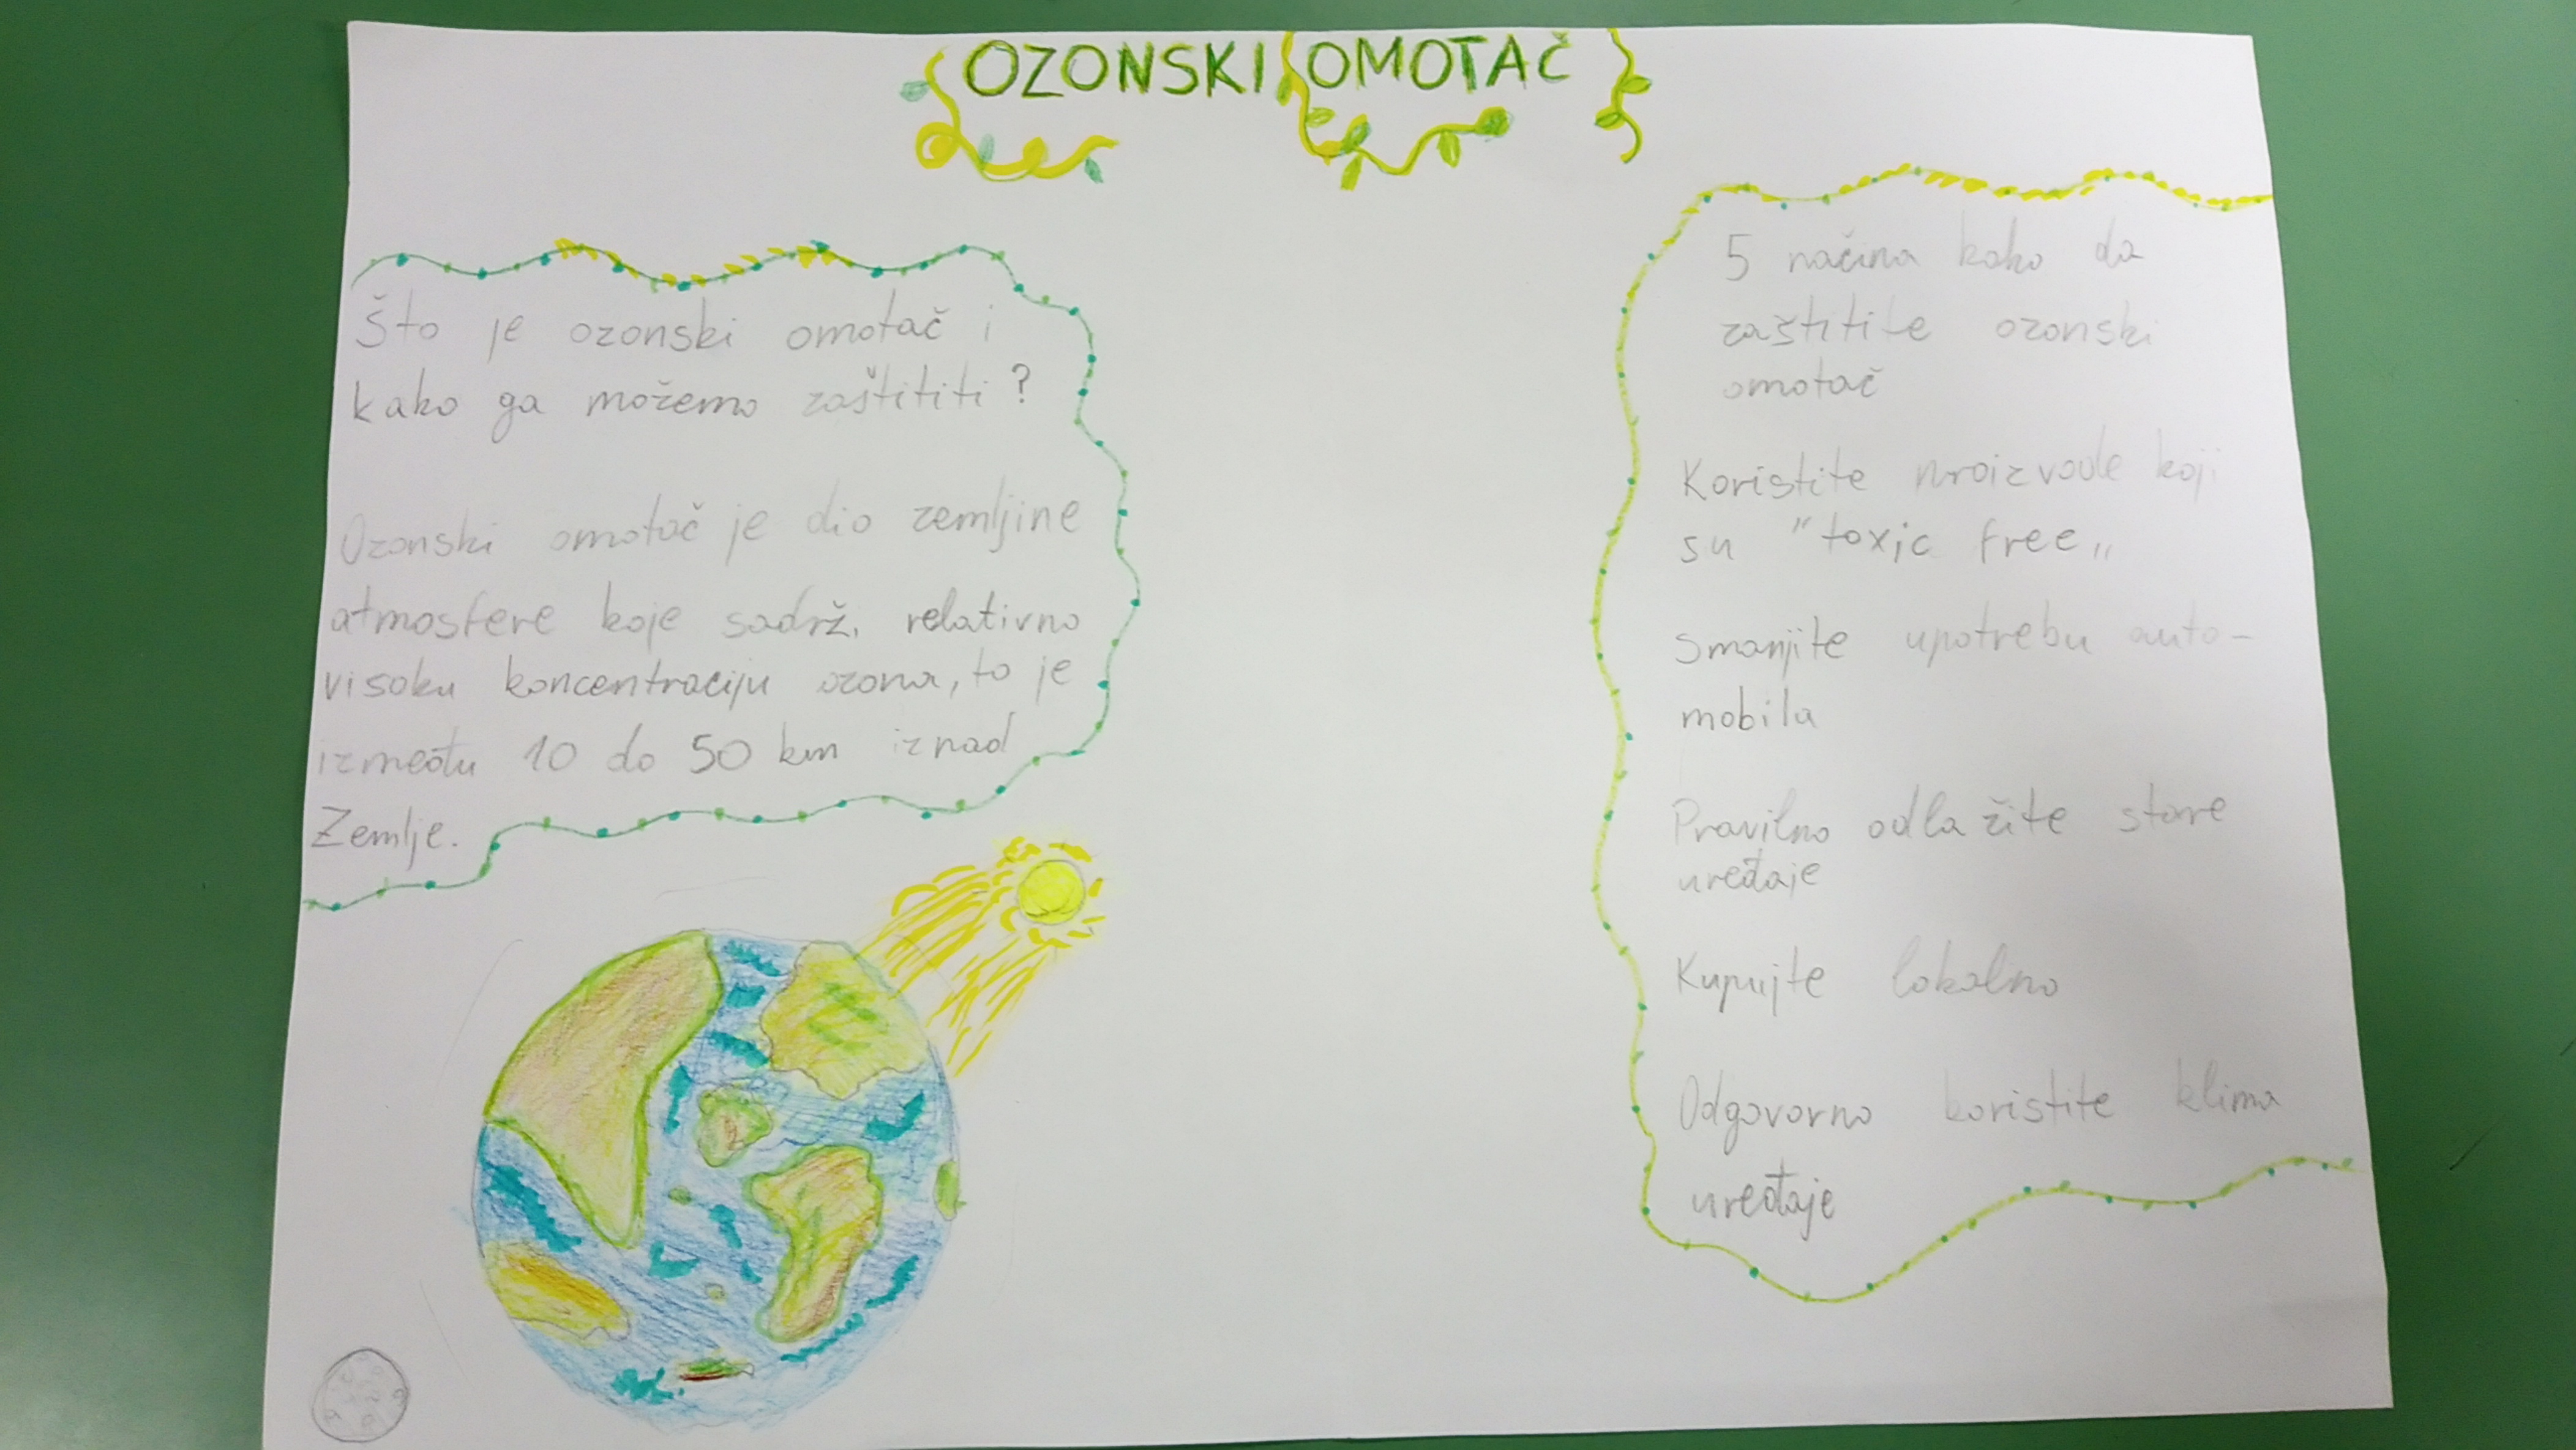 OZONSKI OMOTAČ
Što je ozonski omotač i
kako ga možemo zaštititi?
Ozonski omotač je dio zemljine
atmosfere koje sadrži relativno
visoku koncentraciju ozona, to je
između 10 do 50 km iznad
Zemlje.
5 načina kako da
zaštitite ozonski
omotač
Koristite proizvode koji
su "toxic free„
Smanjite upotrebu auto-
mobila
Pravilno odlažite stare
uređaje
Kupujte lokalno
Odgovorno koristite klima
uređaje